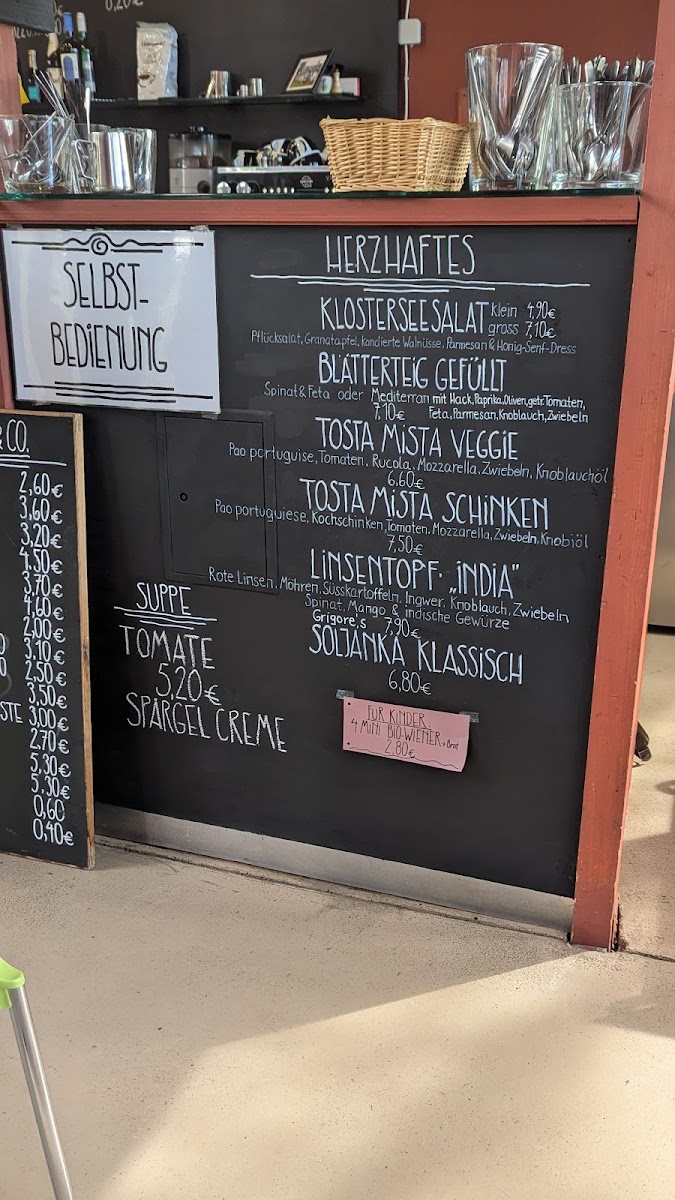 0,20€
SELBST-
BEDIENUNG
& CO.
2,60€
3,60€
3,20€
4,50€
3,70€
4,60€
2,00€
3,10€
2,50€
3,50€
3,00€
2,70€
5,30€
5,30€
0,60
0,40€
HERZHAFTES
KLOSTERSEESALAT klein 4,90€
gross 7,10€
Pflücksalat, Granatapfel, kandierte Walnüsse, Parmesan & Honig-Senf-Dress
BLÄTTERTEIG GEFÜLLT
Spinat & Feta oder Mediterran mit Hack, Paprika, Oliven, getr. Tomaten,
7,10€ Feta, Parmesan, Knoblauch, Zwiebeln
TOSTA MISTA VEGGIE
Pao portuguise, Tomaten, Rucola, Mozzarella, Zwiebeln, Knoblauchöl
6,60€
TOSTA MISTA SCHINKEN
Pao portuguiese, Kochschinken, Tomaten, Mozzarella, Zwiebeln, Knobiöl
7,50€
LINSENTOPF · „INDIA"
Rote Linsen, Möhren, Süsskartoffeln, Ingwer, Knoblauch, Zwiebeln
Spinat, Mango & indische Gewürze
Grigore's 7,90€
SOLJANKA KLASSISCH
6,80€
SUPPE
TOMATE
5,20€
SPARGELCREME
FÜR KINDER:
4 MINI BIO-WIENER + Brot
2,80€